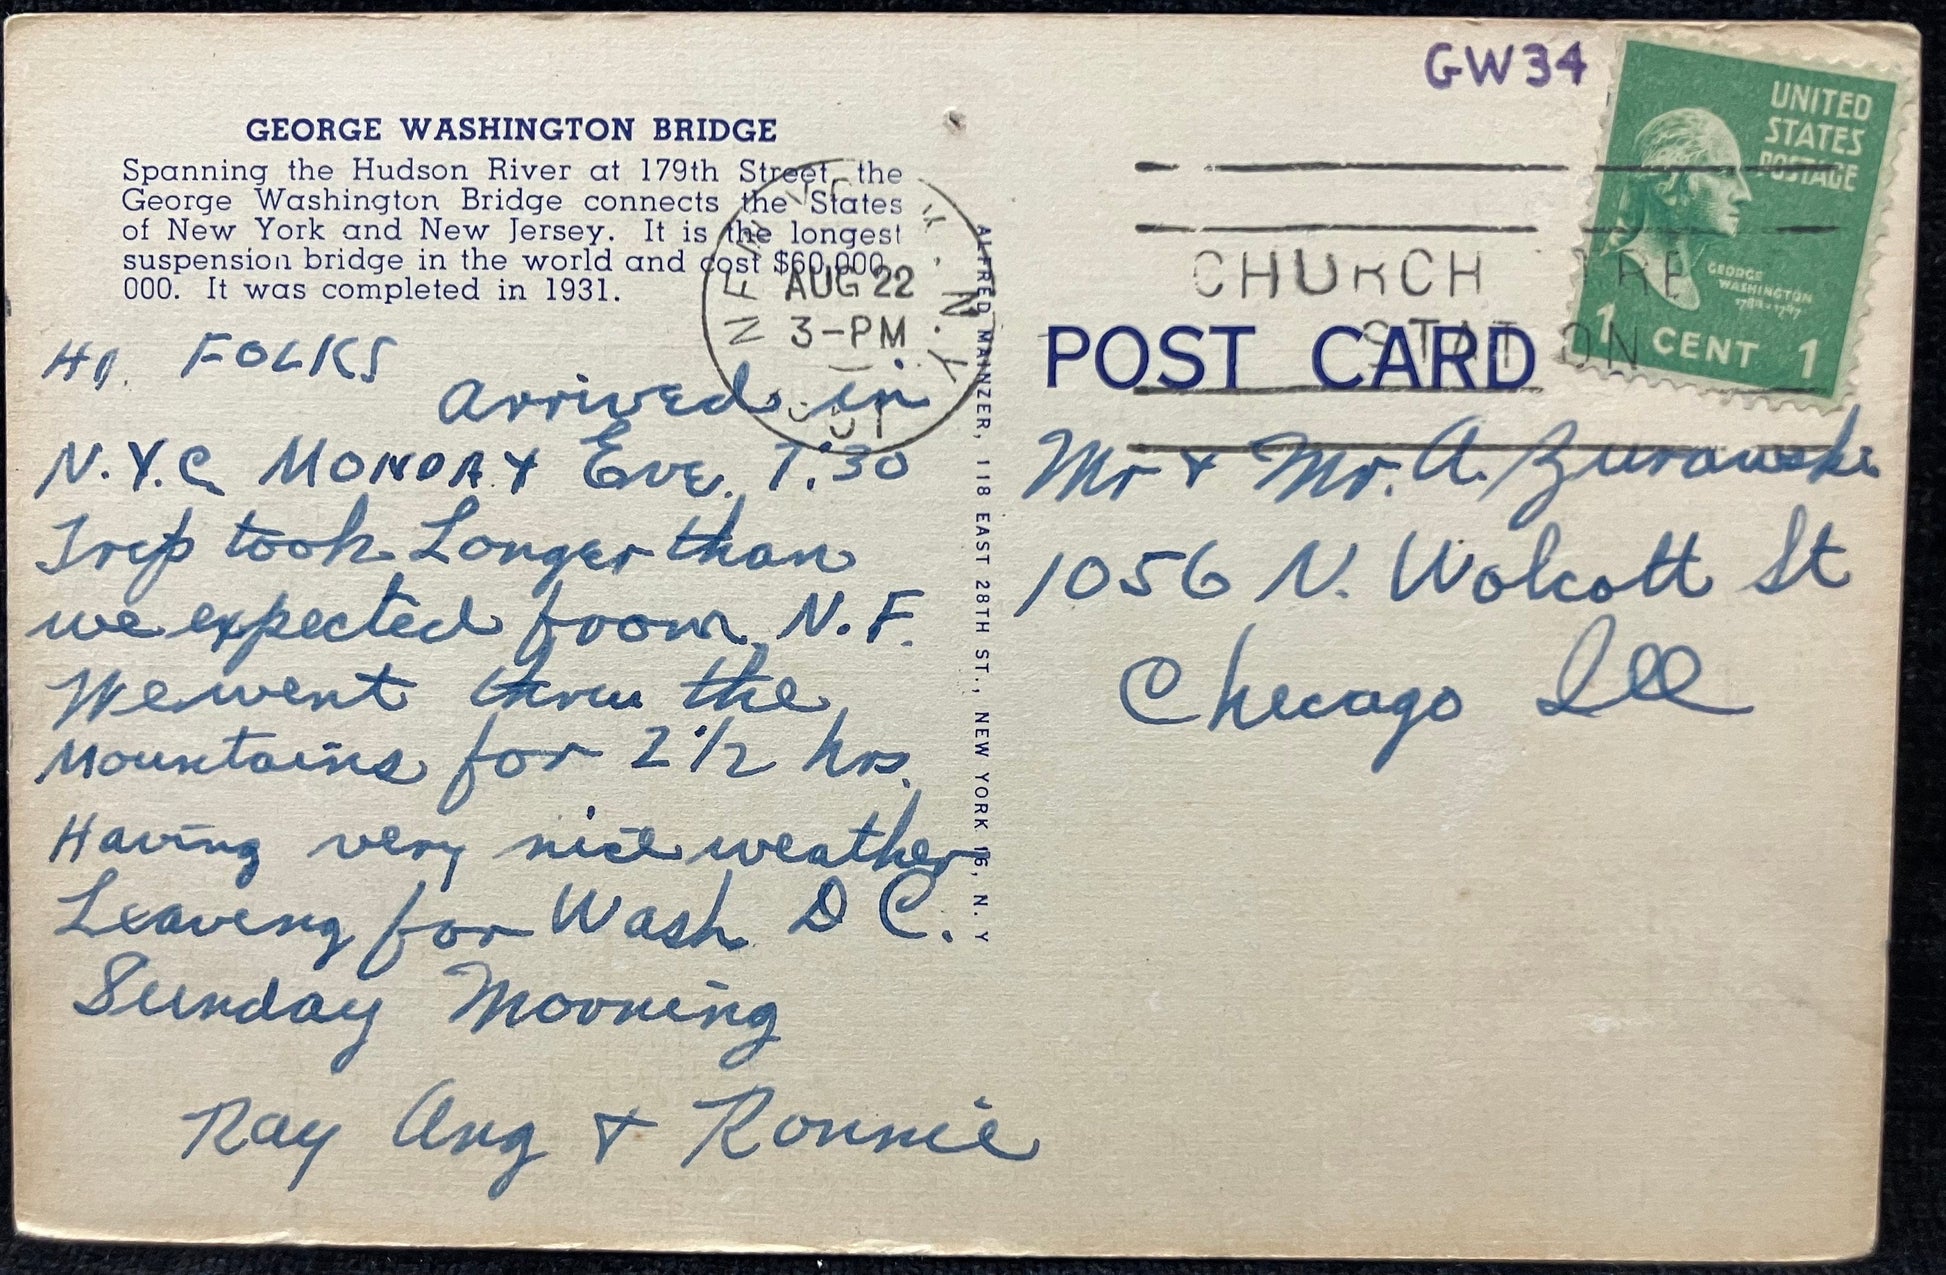 GW34
UNITED
STATES
POSTAGE
GEORGE
WASHINGTON
1 CENT 1
GEORGE WASHINGTON BRIDGE
Spanning the Hudson River at 179th Street, the
George Washington Bridge connects the States
of New York and New Jersey. It is the longest
suspension bridge in the world and cost $60,000,
000. It was completed in 1931.
NEW YORK, N.Y.
AUG 22
3-PM
CHURCH
STATION
POST CARD
ALFRED MAINZER, 118 EAST 28TH ST., NEW YORK 16, N. Y
HI, FOLKS
Arrived in
N.Y.C. MONDAY Eve. 7:30
Trip took Longer than
we expected from N.F.
We went thru the
Mountains for 2 1/2 hrs.
Having very nice weather
Leaving for Wash D C.
Sunday Morning
Ray Ang & Ronnie
Mr & Mr. A. Zurawski
1056 N. Wolcott St
Chicago Ill